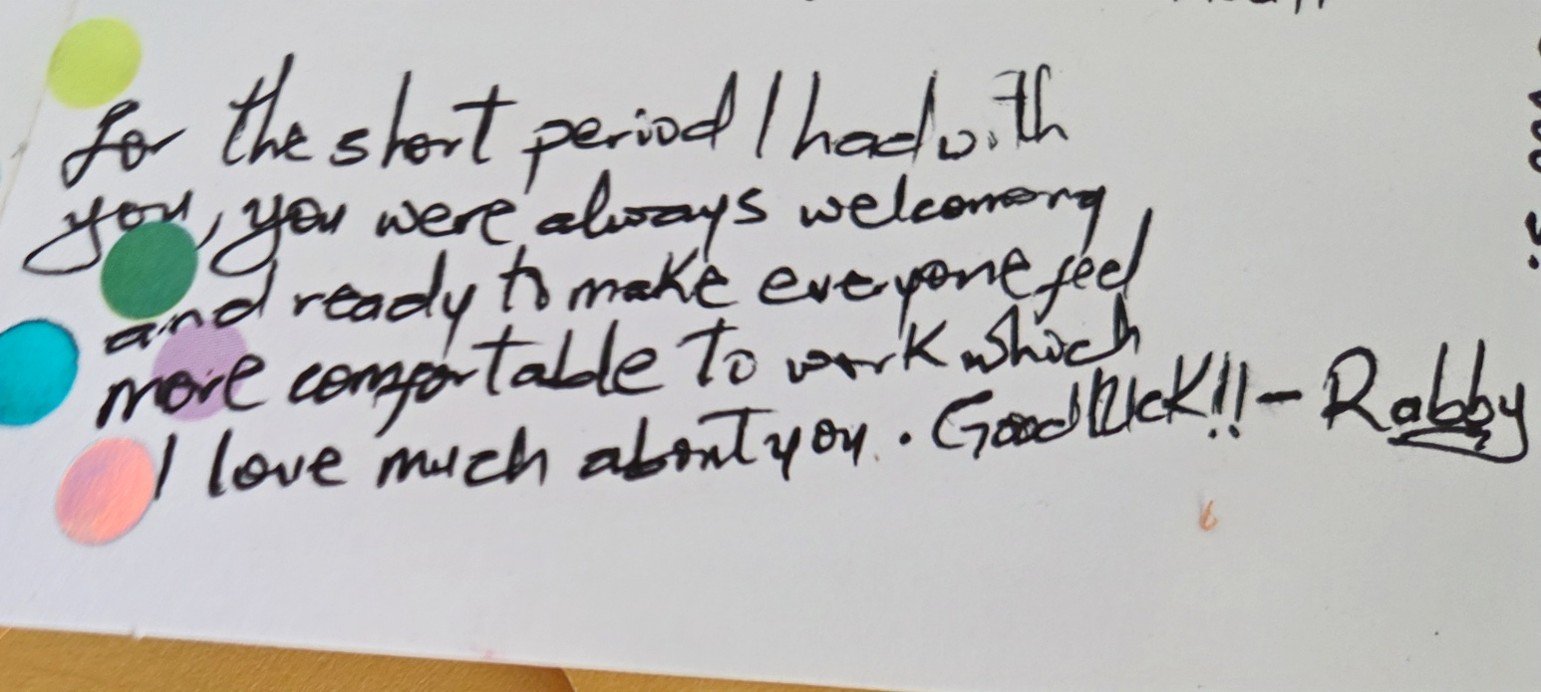 for the short period I had with
you, you were always welcoming
and ready to make everyone feel
more comfortable to work which
I love much about you. Good luck!! - Rabby